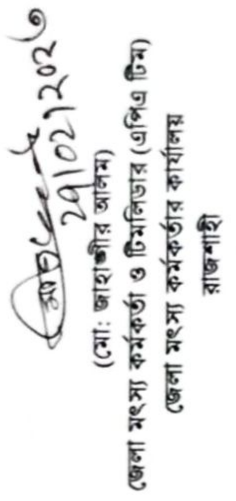 ২৭/০২/২০২৩
(মো: জাহাঙ্গীর আলম)
জেলা মৎস্য কর্মকর্তা ও টিমলিডার (এপিএ টিম)
জেলা মৎস্য কর্মকর্তার কার্যালয়
রাজশাহী